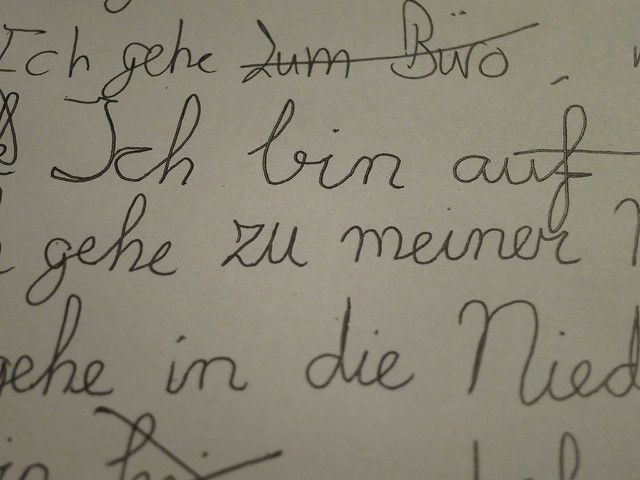 Ich gehe zum Büro
Ich bin auf
gehe zu meiner
gehe in die Nied